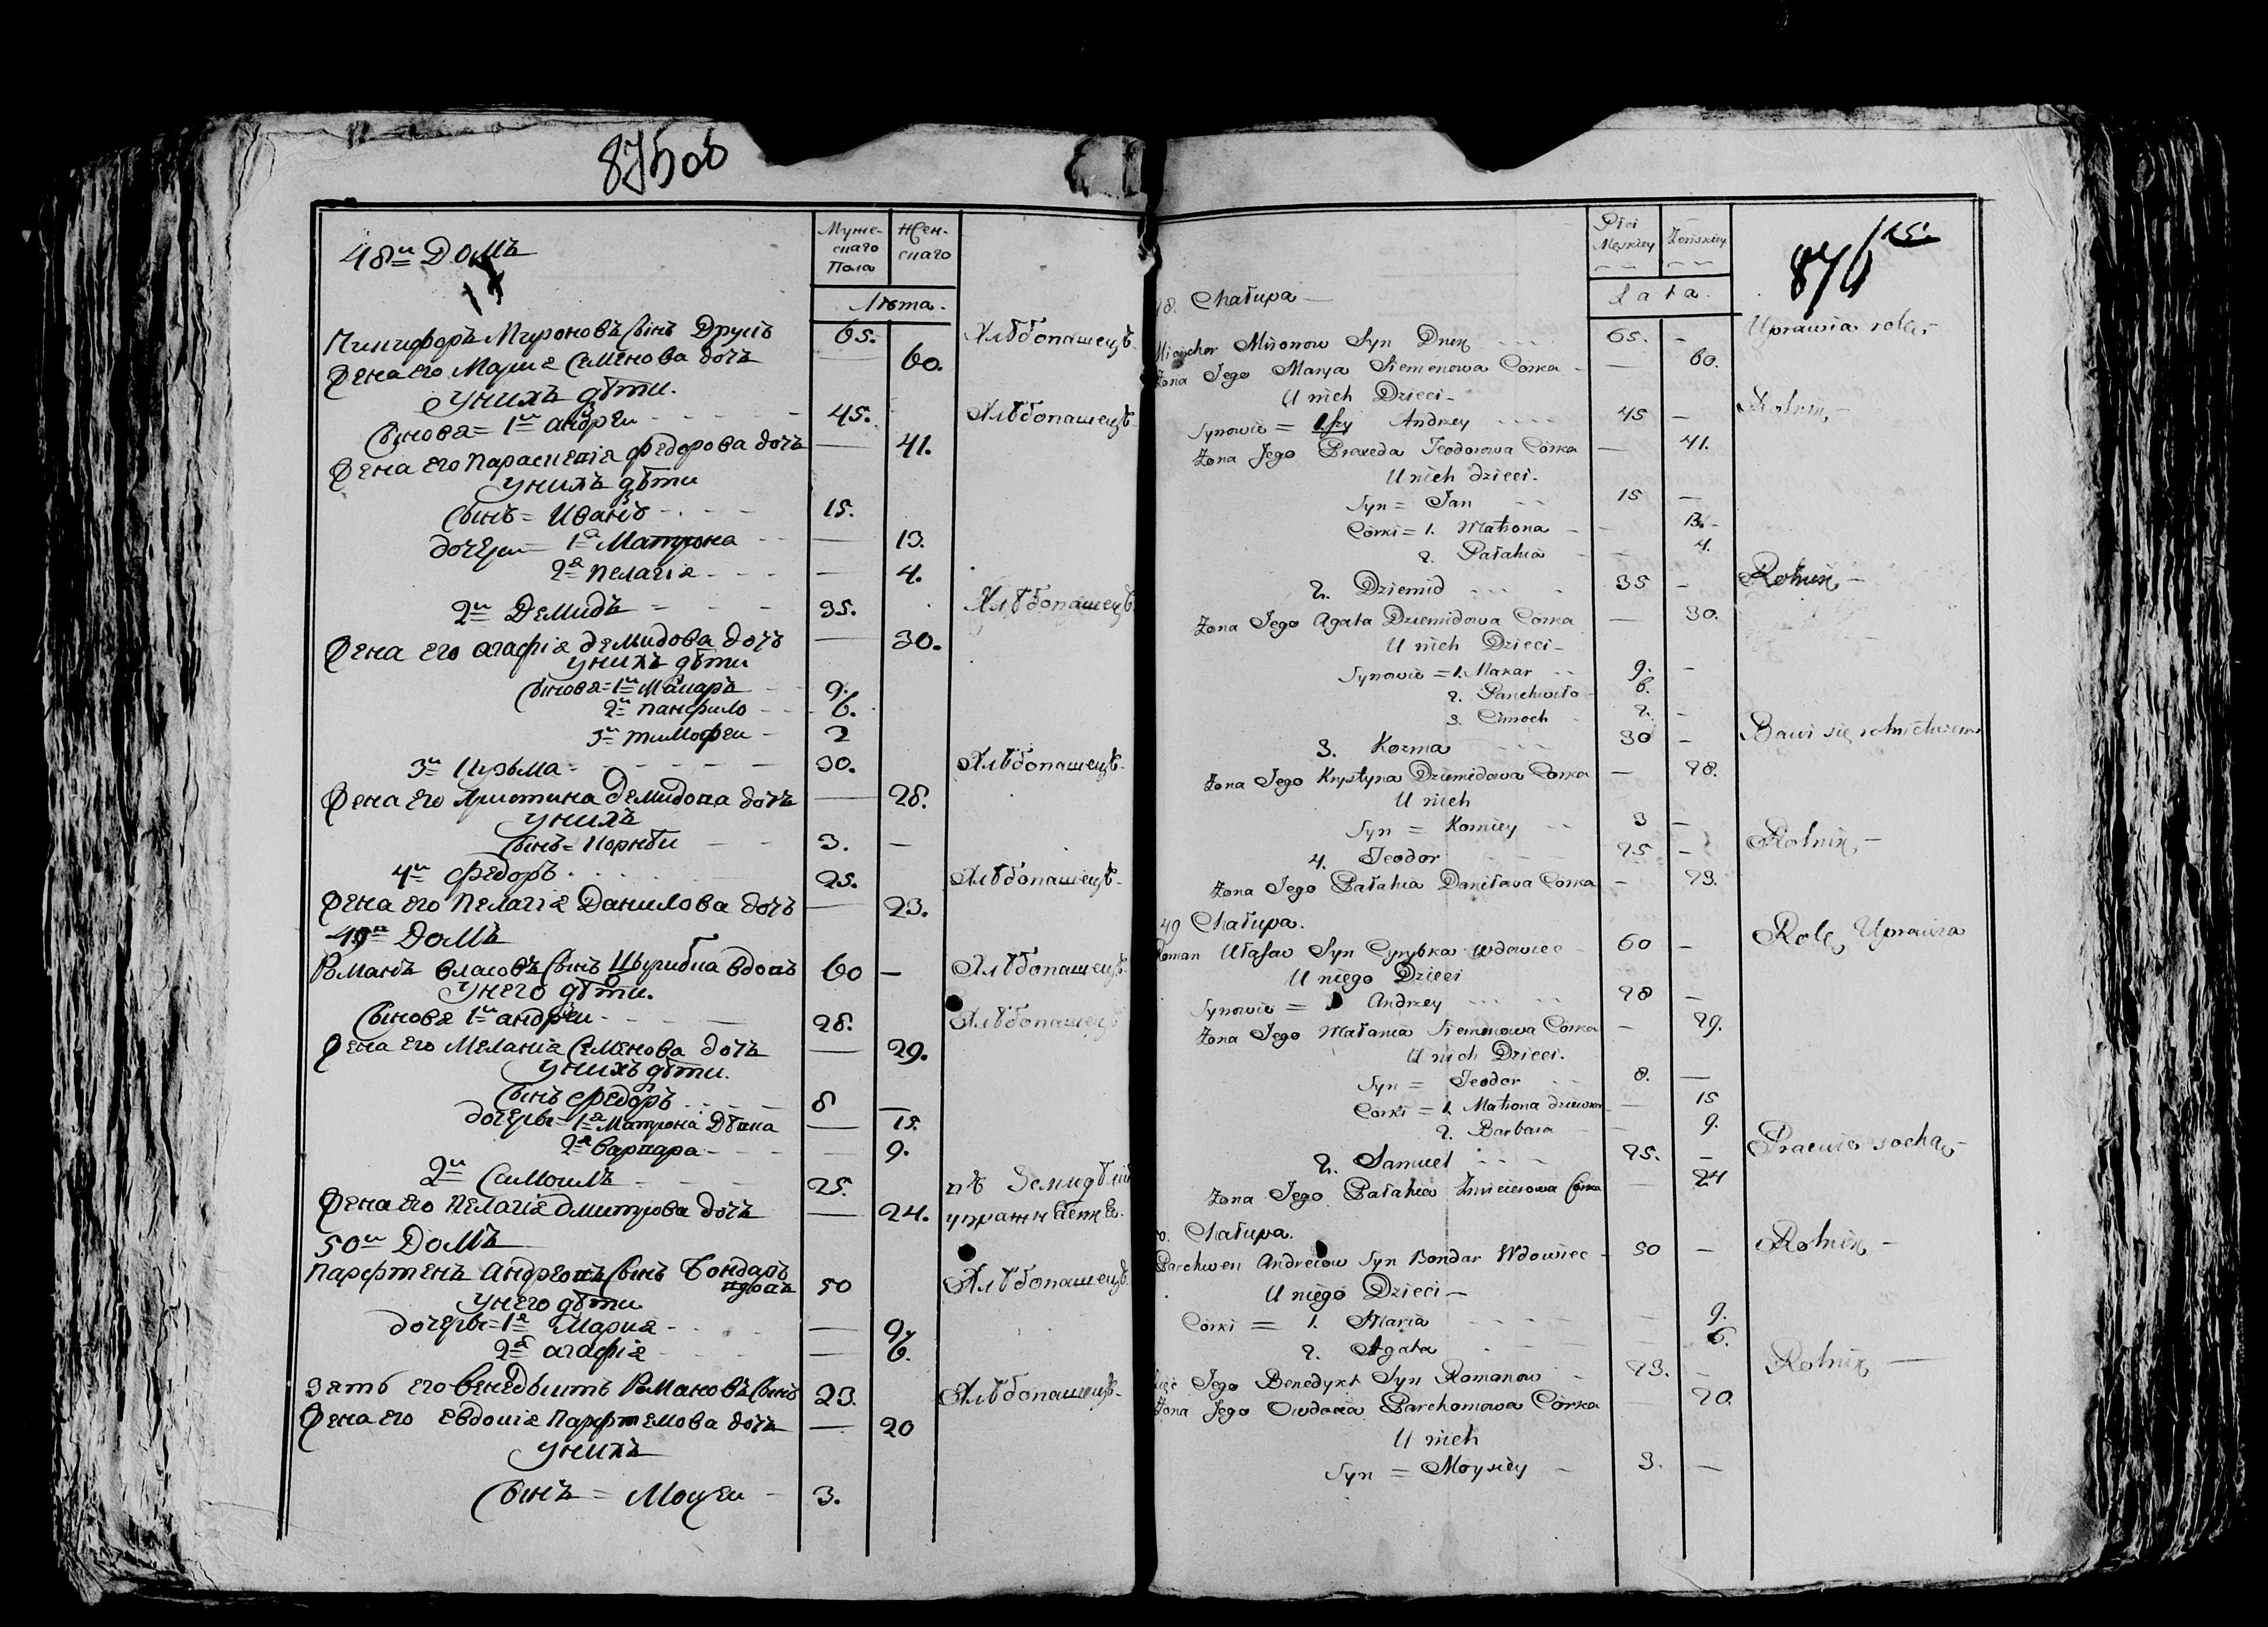 875об
48й Домъ
Мужескаго Пола
Женскаго
Лѣта.
Никифоръ Мироновъ сынъ Друкъ 65. Хлѣбопашецъ
Жена его Мариа Семенова дочь — 60.
У нихъ дѣти.
Сынова = 1й андреи 45. Хлѣбопашецъ
Жена его Параскевіа Федорова дочь — 41.
У нихъ дѣти
Сынъ = Иванъ 15.
дочери = 1а Матрона — 13.
2а Пелагіа — 4.
2й Демидъ 35. Хлѣбопашецъ
Жена его агафіа демидова дочь — 30.
У нихъ дѣти
Сынова = 1й Макаръ 9.
2й панфило 6.
3й тимофеи 2
3й Кузьма 30. Хлѣбопашецъ
Жена его Христина демидова дочь — 28.
У нихъ
Сынъ = Корнѣи 3. —
4й Федоръ 25. Хлѣбопашецъ
Жена его Пелагіа Данилова дочь — 23.
49й Домъ
Романъ власовъ сынъ Цырибка вдовъ 60 — Хлѣбопашецъ
У него дѣти.
Сынова 1й андреи 28. Хлѣбопашецъ
Жена его Меланіа Семенова дочь — 29.
У нихъ дѣти.
Сынъ федоръ 8 —
дочеры = 1а Матрона Дѣвка — 15.
2а варвара — 9.
2й Самоилъ 25. въ Земидѣлій
Жена его Пелагіа дмитрова дочь — 24. упражнѣетъ.
50й Домъ
Парфтенъ Андреевъ сынъ Бондаръ
вдовъ 50 Хлѣбопашецъ
У него дѣти
дочеры = 1а Мариа — 9.
2а агафіа — 6.
Зять его Венедыктъ Романовъ сынъ 23. Хлѣбопашецъ
Жена его Евдокіа Парфтемова дочь — 20
У нихъ
Сынъ = Моизеи 3.
876
Płci Męskiey
Żeńskiey
Lata.
48. Chałupa
Michor Mironow Syn Druk 65. — Uprawia rolę
Żona Jego Marya Siemenowa Córka — 60.
U nich Dzieci
Synowie = 1szy Andrzey 45 — Rolnik
Żona Jego Praxeda Teodorowa Córka — 41.
U nich dzieci.
Syn = Jan 15 —
Córki = 1. Matrona — 13.
2. Pałahia — 4.
2. Dziemid 35 — Rolnik
Żona Jego Agata Dziemidowa Córka — 30.
U nich Dzieci
Synowie = 1. Makar 9. —
2. Panchwiło 6.
3. Cimoch 2. —
3. Kozma 30 — Bawi się rolnictwem
Żona Jego Krystyna Dziemidowa Córka — 28.
U nich
Syn = Korniey 3 —
4. Teodor 25 — Rolnik
Żona Jego Pałahia Daniłowa Córka — 23.
49 Chałupa.
Roman Ułasow Syn Cyrybka wdowiec 60 — Rolę Uprawia
U niego Dzieci
Synowie = Andrzey 28 —
Żona Jego Małania Siemionowa Córka — 29.
U nich Dzieci.
Syn = Teodor 8. —
Córki = 1. Matrona dziewka — 15
2. Barbara — 9.
2. Samuel 25. — Pracuie sochą
Żona Jego Pałahia Zmicierowa Córka — 24
50. Chałupa.
Parchwen Andreiow Syn Bondar Wdowiec 50 — Rolnik
U niego Dzieci
Córki = 1. Maria — 9.
2. Agata — 6.
Zięć Jego Benedykt Syn Romanow 23. — Rolnik
Żona Jego Owdocia Parchomowa Córka — 20.
U nich
Syn = Moysiey 3. —